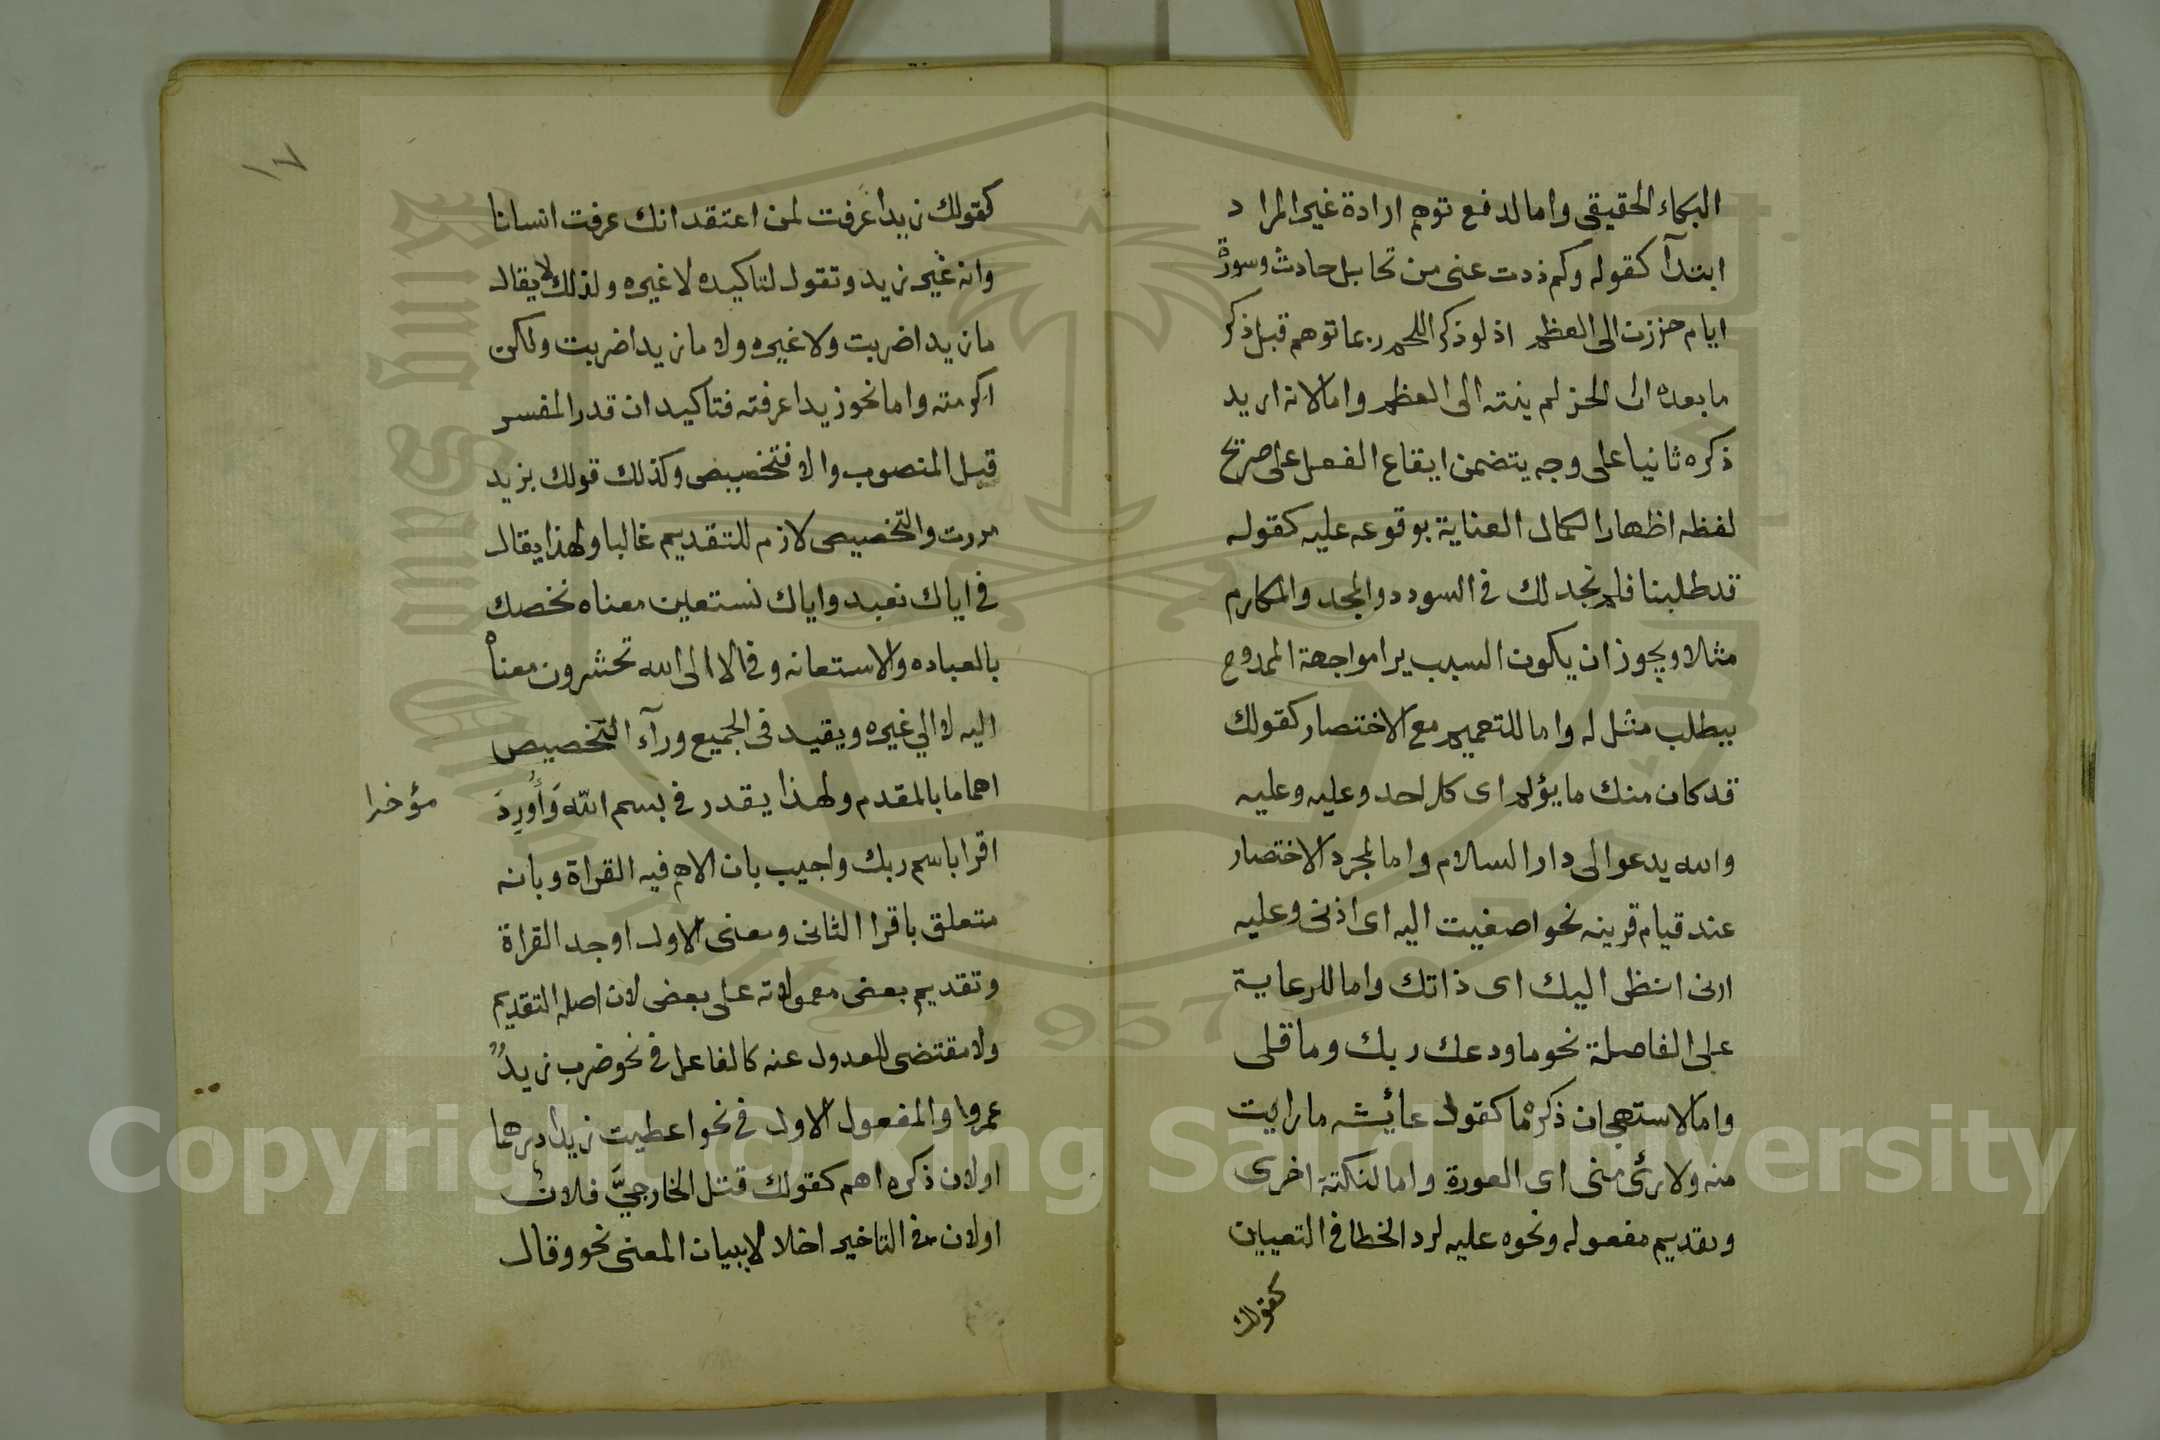 البكاء الحقيقي واما لدفع توهم ارادة غير المراد
ابتدآ كقوله وكم ذدت عني من تحامل حادث وسورة
ايام حززن الى العظم اذ لو ذكر اللحم ربما توهم قبل ذكر
ما بعده ان الحز لم ينته الى العظم واما لانه اريد
ذكره ثانيا على وجه يتضمن ايقاع الفعل على صريح
لفظه اظهارا لكمال العناية بوقوعه عليه كقوله
قد طلبنا فلم نجد لك في السودد والمجد والمكارم
مثلا ويجوز ان يكون السبب يرا مواجهة الممدوح
بيطلب مثل له واما للتعميم مع الاختصار كقولك
قد كان منك ما يؤلم اى كل احد وعليه وعليه
والله يدعوا الى دار السلام واما لمجرد الاختصار
عند قيام قرينه نحو اصغيت اليه اى اذنى وعليه
ارنى انظر اليك اى ذاتك واما للرعاية
على الفاصلة نحو ما ودعك ربك وما قلى
واما لاستهجان ذكره كما كقول عائشه ما رايت
منه ولا رئ منى اى العورة واما لنكتة اخرى
وتقديم مفعوله ونحوه عليه لرد الخطا في التعيين
كقولك
١٧
كقولك زيدا عرفت لمن اعتقد انك عرفت انسانا
وانه غير زيد وتقول لتاكيده لا غيره ولذلك لا يقال
ما زيدا ضربت ولا غيره ولا ما زيدا ضربت ولكن
اكرمته واما نحو زيدا عرفته فتاكيد ان قدر المفسر
قبل المنصوب والا فتخصيص وكذلك قولك بزيد
مررت والتخصيص لازم للتقديم غالبا ولهذا يقال
في اياك نعبد واياك نستعين معناه نخصك
بالعباده والاستعانه وفي لا الى الله تحشرون معناه
اليه لا الي غيره ويفيد في الجميع ورآء التخصيص
اهماما بالمقدم ولهذا يقدر في بسم الله وَأُورِدَ
مؤخرا
اقرا باسم ربك واجيب بان الاهم فيه القراة وبانه
متعلق باقرا الثانى ومعنى الاول اوجد القراة
وتقديم بعض معمولاته على بعض لان اصله التقديم
ولا مقتضى للعدول عنه كالفاعل في نحو ضرب زيدٌ
عمروا والمفعول الاول في نحو اعطيت زيدا درهما
اولان ذكره اهم كقولك قتل الخارجيَّ فلان
اولان في التاخير اخلالا ببيان المعنى نحو وقال
King Saud University
1957
Copyright © King Saud University